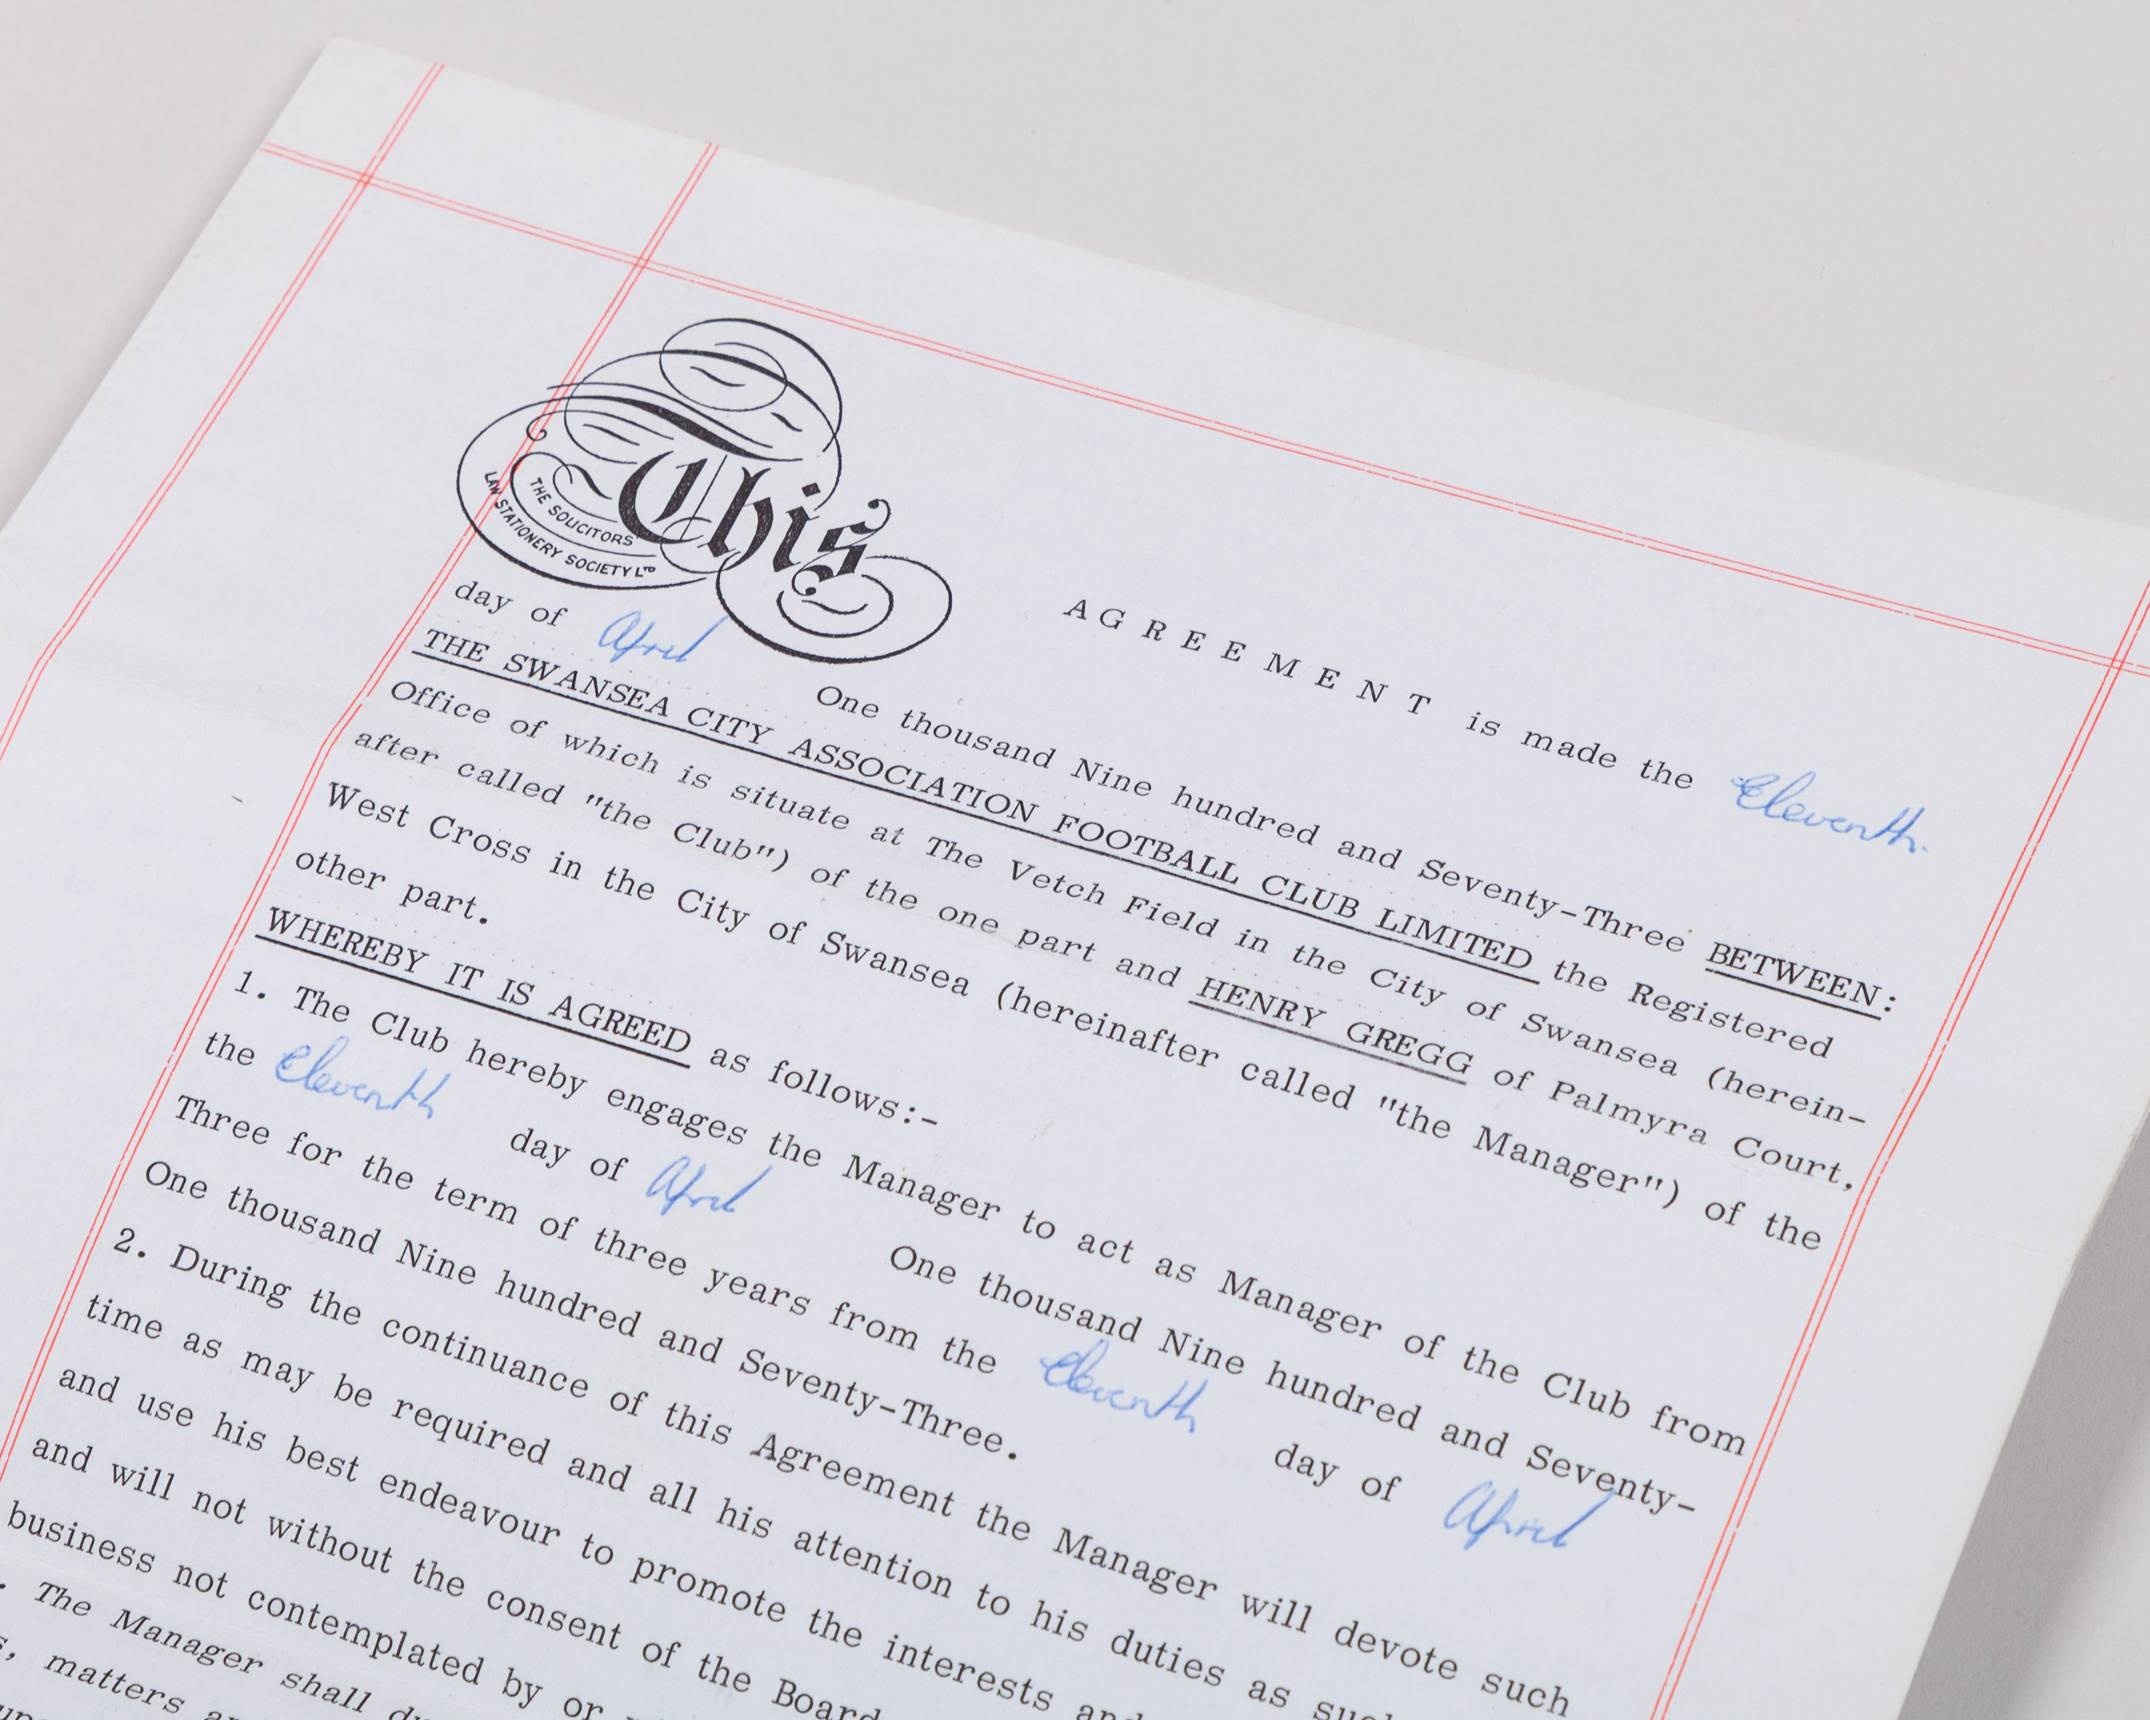 This AGREEMENT is made the Eleventh
THE SOLICITORS'
LAW STATIONERY SOCIETY LTD
day of April One thousand Nine hundred and Seventy-Three BETWEEN:
THE SWANSEA CITY ASSOCIATION FOOTBALL CLUB LIMITED the Registered
Office of which is situate at The Vetch Field in the City of Swansea (herein-
after called "the Club") of the one part and HENRY GREGG of Palmyra Court,
West Cross in the City of Swansea (hereinafter called "the Manager") of the
other part.
WHEREBY IT IS AGREED as follows:-
1. The Club hereby engages the Manager to act as Manager of the Club from
the Eleventh day of April One thousand Nine hundred and Seventy-
Three for the term of three years from the Eleventh day of April
One thousand Nine hundred and Seventy-Three.
2. During the continuance of this Agreement the Manager will devote such
time as may be required and all his attention to his duties as
and use his best endeavour to promote the interests
and will not without the consent of the Board
business not contemplated by or
The Manager shall
matters